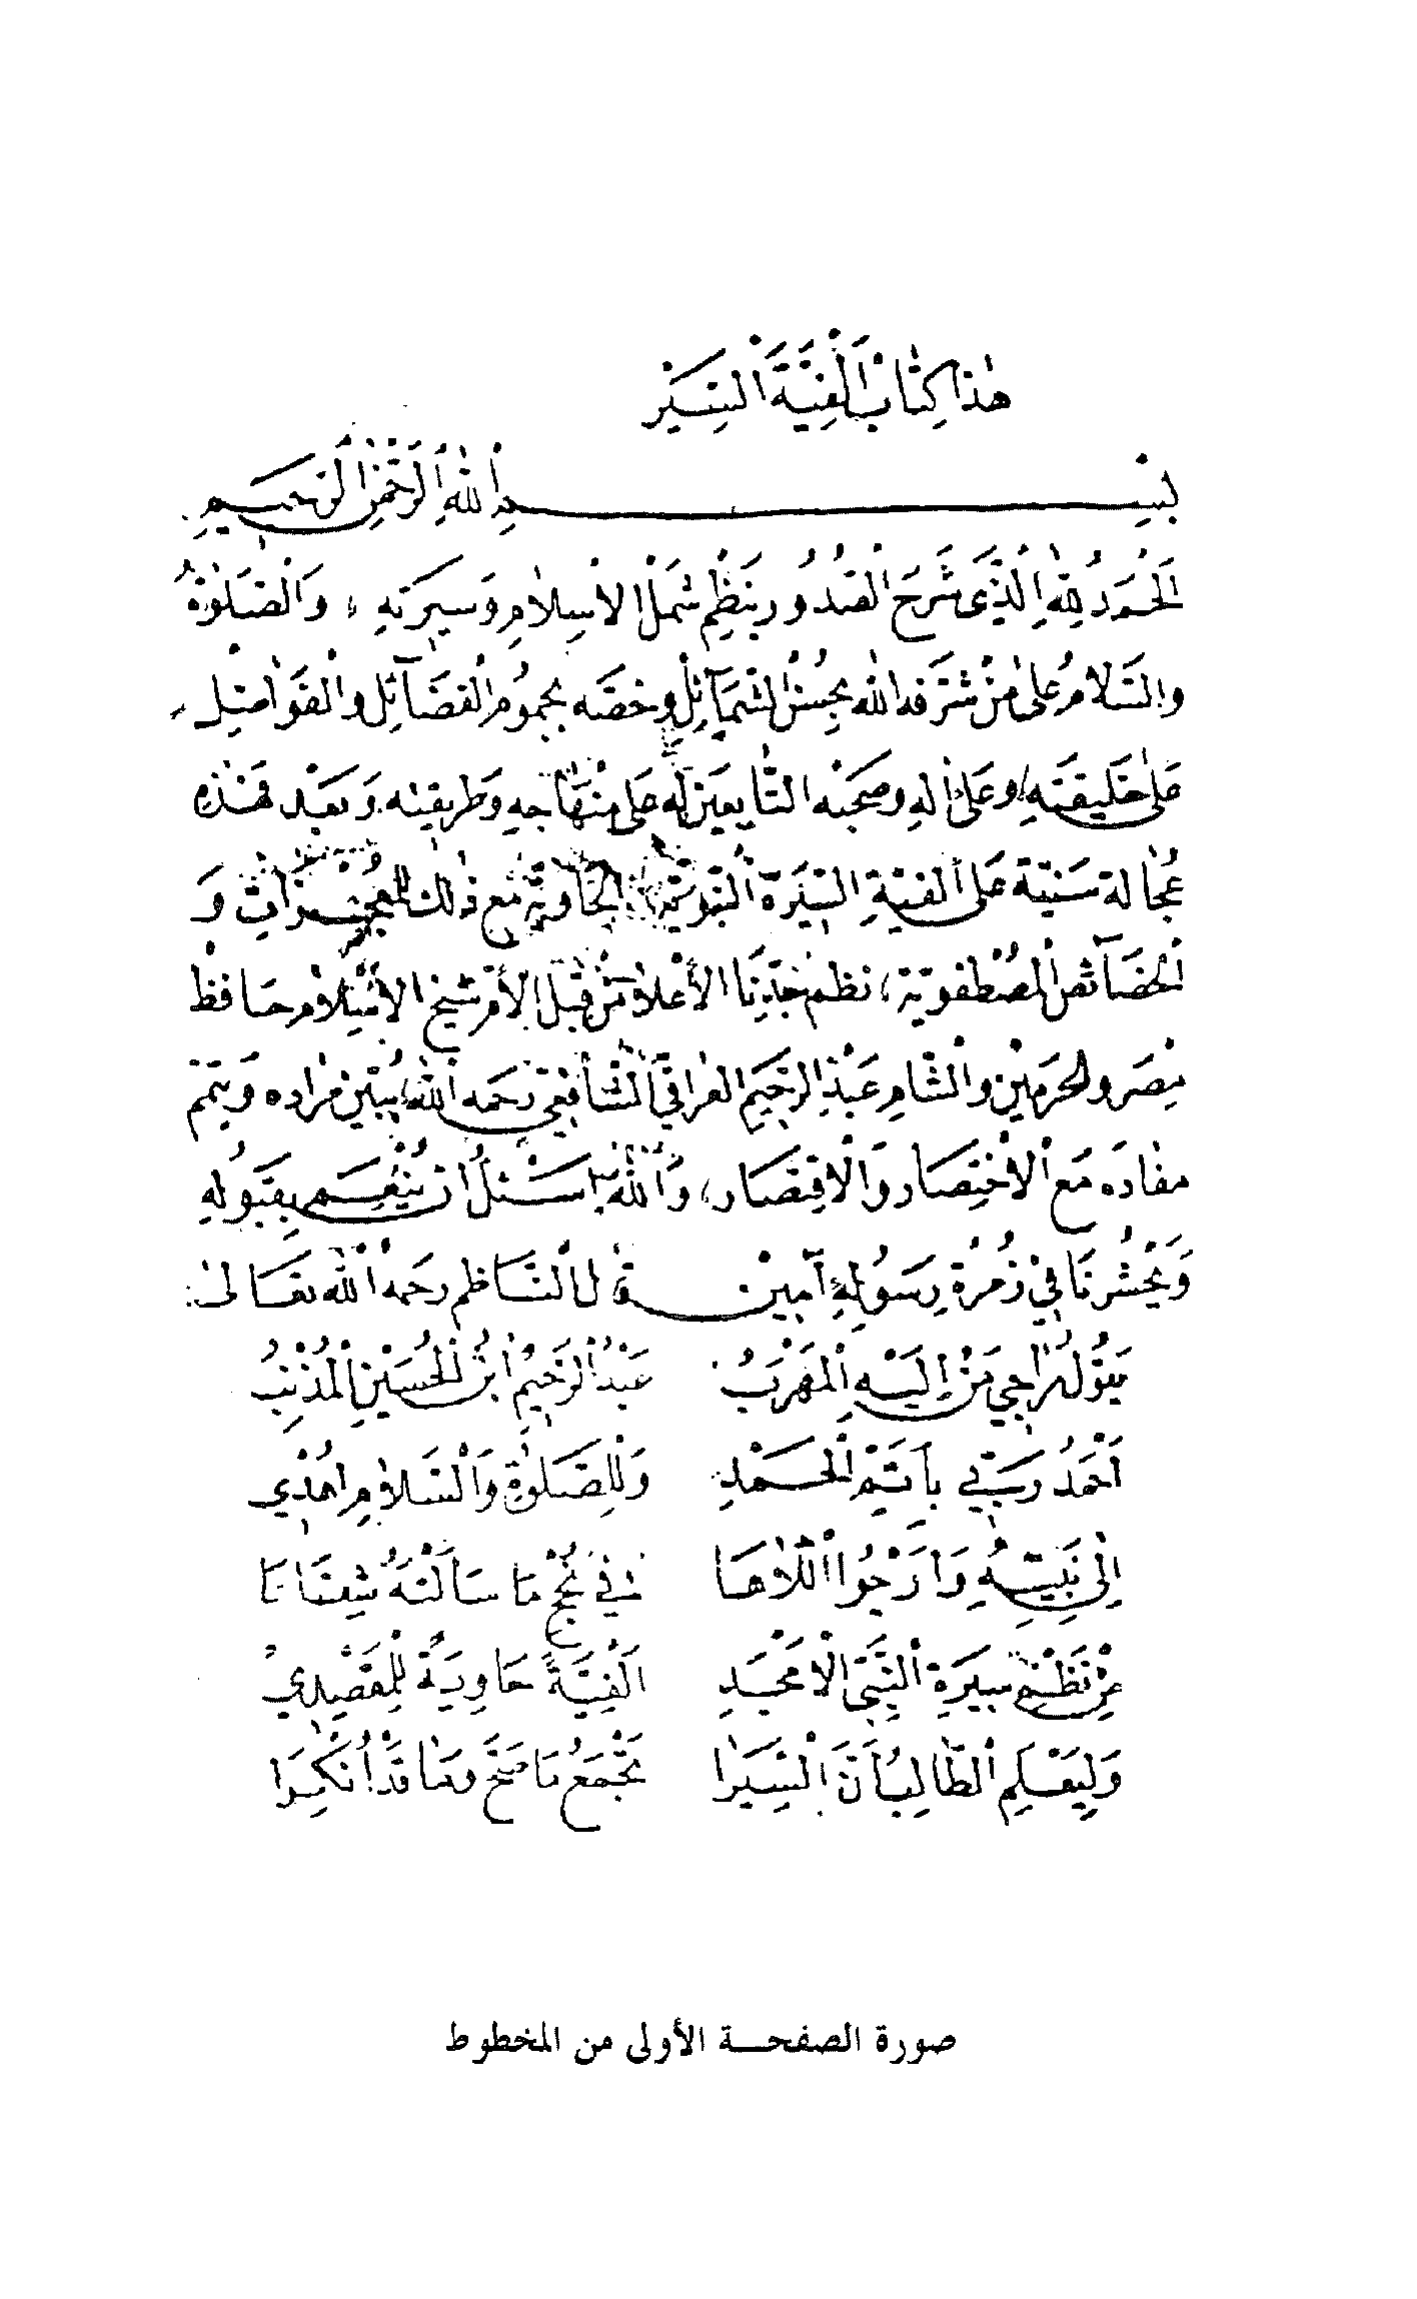 هٰذا كِتَابُ اَلْفِيَّةِ اَلْسِّيَرْ
بِسْمِ اَللّٰهِ اَلرَّحْمٰنِ اَلرَّحيمِ
اَلْحَمْدُ لِلّٰهِ اِلَّذَّى شَرَحَ اْلصُدُورِ بنَظْمِ شَمْلْ الْأسِلاٰمِ وَسيَرتِهِ ، وَالْصَلَوٰةُ
وٱلسَّلاٰمُ عَلىٰ مَنْ شَرَّفه اللّٰه بِحُسْنِ الشَمَآئِلْ وخصَّه بعُمُومِ اْلفَضَآئِل والْفَوَاضِلِ
عَلىٰ خَليقَتِهِ، وعَلىٰ اٰلِهِ وصَحبْه التَّابعينَ لَه عَلى مِنْهٰاجِهِ وَطريقتِه. وَبَعْد فَهٰذِهِ
عُجٰالة سَنيّة عَلىٰ ألفيّةِ السّيَرَة اَلنبوّيّة، الحٰاويَة مَع ذٰلك للمعجزَاتِ وَ
الخصَآئصِ اْلمُصْطفويّة، نظم جَدِّنَا الأعْلاٰ مَنْ قِبَلِ الأمّ شيخ الأسِلاٰم حَافظْ
مِصَر والحرَمَيْن والْشَامِ عَبْدِ الرَّحيَم العراقيّ اَلْشَّافعِي رَحمَه اَللّٰه، يُبيّن مُرٰاده وَيتمّم
مفٰادَه مَعَ اْلاْختِصَار وَاْلاقتصَار، وَاَللّٰه اسَئلُ ان يُنْعِمَ بِقَبَولِهِ
وَيَحْشُرنَا فِيْ زُمرَة رِسَوُلِهِ آمِين قٰال اَلنَّاظم رحَمهُ اْللّٰه تعَالىٰ
يَقُوُلُ رٰاجِي مَنْ اِلَيْهِ اِلْمَهْرَبُ عَبْدُ اَلرّحَيمُ ابْنُ اَلحُسَيْنِ اَلْمُذْنِبُ
اَحْمَدُ رَبّي بأتَمِّ اَلْحَمْدِ وَللِصَّلوٰةِ وَاَلْسَّلاٰمِ اهُدْي
إلىٰ نَبِيِّهِ وَارْجُوا اللّٰاهَا في نُجْحِ مَا سَألْتهُ شِفَاهَا
مِنْ نَظْمِ سيَرَةِ اَلنَّبِيّ الْاَمْجَدِ اَلْفِيّةً حَاوِيَةً لِلْمَقصِدِ
وَليَعْلَمِ اَلطَّالِبُ أَنَّ اَلسِّيَرَا تَجْمَعُ مَا صَحَّ ومَا قَدْ أُنكِرَا
صورة الصفحة الأولى من المخطوط